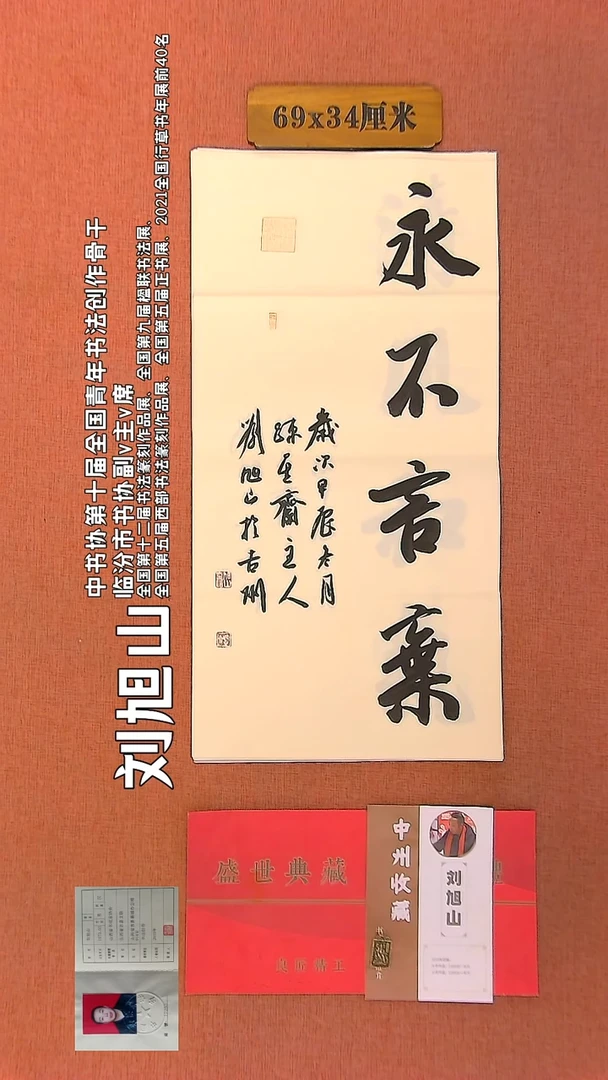 69x34厘米
永不言棄
歲次甲辰冬月
珠玉齋主人
劉旭山於古州
中书协第十届全国青年书法创作骨干
临汾市书协副v主v席
全国第十二届书法篆刻作品展、全国第九届楹联书法展、
全国第五届西部书法篆刻作品展、全国第五届正书展、2021全国行草书年展前40名
刘旭山
盛世典藏
中州收藏
刘旭山